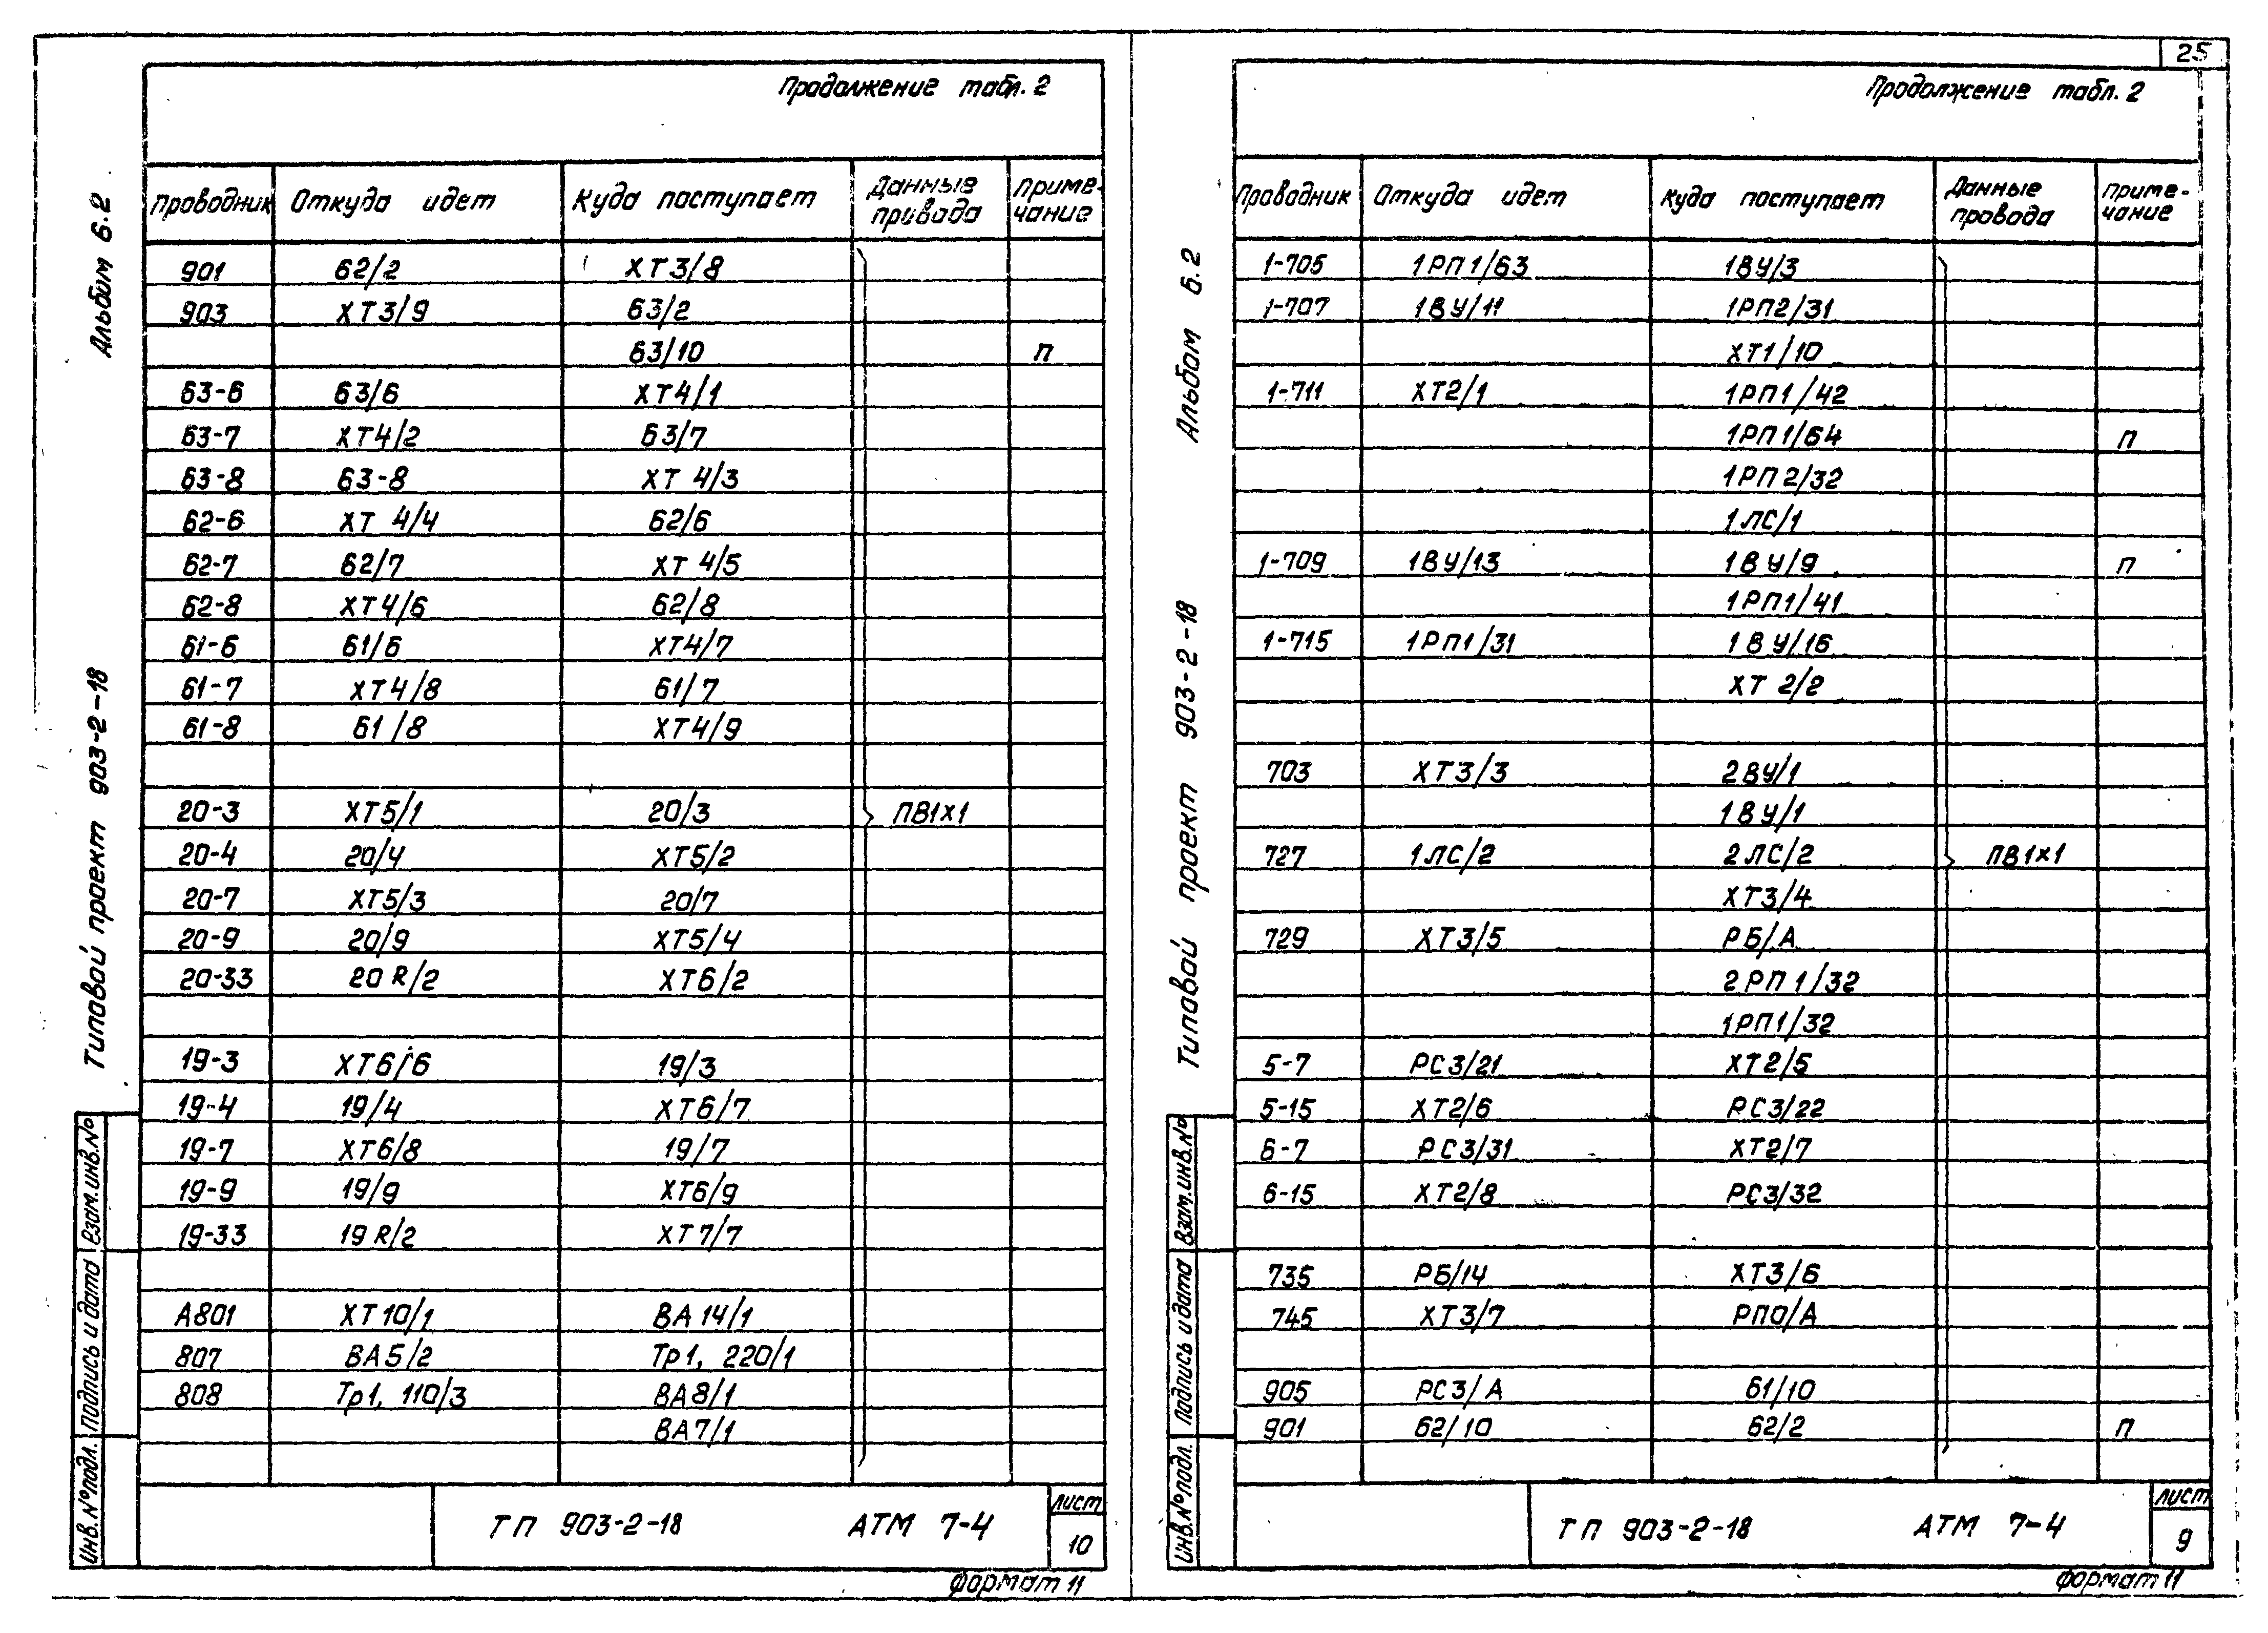 25
Продолжение табл. 2
Альбом 6.2
Типовой проект 903-2-18
Проводник Откуда идет Куда поступает Данные провода Приме-чание
901 62/2 ХТ3/8
903 ХТ3/9 63/2
63/10 П
63-6 63/6 ХТ4/1
63-7 ХТ4/2 63/7
63-8 63-8 ХТ 4/3
62-6 ХТ 4/4 62/6
62-7 62/7 ХТ 4/5
62-8 ХТ4/6 62/8
61-6 61/6 ХТ4/7
61-7 ХТ4/8 61/7
61-8 61/8 ХТ4/9
20-3 ХТ5/1 20/3 ПВ1х1
20-4 20/4 ХТ5/2
20-7 ХТ5/3 20/7
20-9 20/9 ХТ5/4
20-33 20 R/2 ХТ6/2
19-3 ХТ6/6 19/3
19-4 19/4 ХТ6/7
19-7 ХТ6/8 19/7
19-9 19/9 ХТ6/9
19-33 19 R/2 ХТ7/7
А801 ХТ10/1 ВА14/1
807 ВА5/2 Тр1, 220/1
808 Тр1, 110/3 ВА8/1
ВА7/1
Взам.инв.№
Подпись и дата
Инв.№подл.
ТП 903-2-18 АТМ 7-4
Лист
10
Формат 11
Продолжение табл. 2
Альбом 6.2
Типовой проект 903-2-18
Проводник Откуда идет Куда поступает Данные провода Приме-чание
1-705 1РП1/63 1ВУ/3
1-707 1ВУ/11 1РП2/31
ХТ1/10
1-711 ХТ2/1 1РП1/42
1РП1/64 П
1РП2/32
1ЛС/1
1-709 1ВУ/13 1ВУ/9 П
1РП1/41
1-715 1РП1/31 1ВУ/16
ХТ 2/2
703 ХТ3/3 2ВУ/1
1ВУ/1
727 1ЛС/2 2ЛС/2 ПВ1х1
ХТ3/4
729 ХТ3/5 РБ/А
2РП1/32
1РП1/32
5-7 РС3/21 ХТ2/5
5-15 ХТ2/6 РС3/22
6-7 РС3/31 ХТ2/7
6-15 ХТ2/8 РС3/32
735 РБ/14 ХТ3/6
745 ХТ3/7 РПО/А
905 РС3/А 61/10
901 62/10 62/2 П
Взам.инв.№
Подпись и дата
Инв.№подл.
ТП 903-2-18 АТМ 7-4
Лист
9
Формат 11